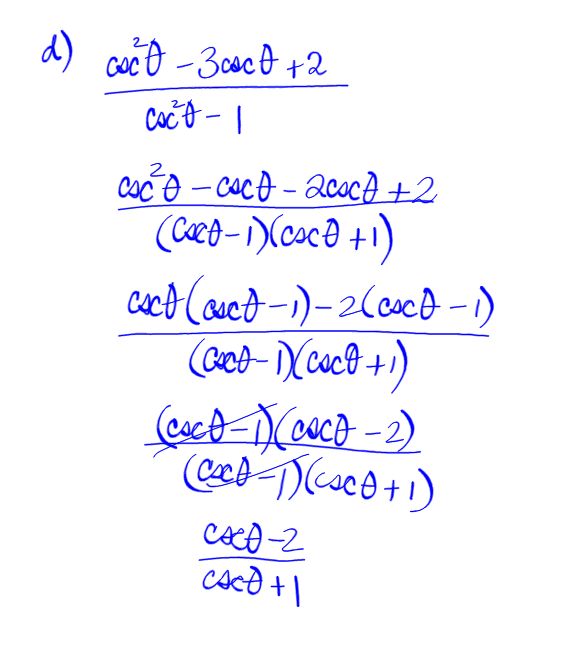 d) csc²θ - 3cscθ + 2
csc²θ - 1
csc²θ - cscθ - 2cscθ + 2
(cscθ-1)(cscθ +1)
cscθ(cscθ-1)-2(cscθ-1)
(cscθ-1)(cscθ+1)
(cscθ-1)(cscθ-2)
(cscθ-1)(cscθ+1)
cscθ-2
cscθ+1